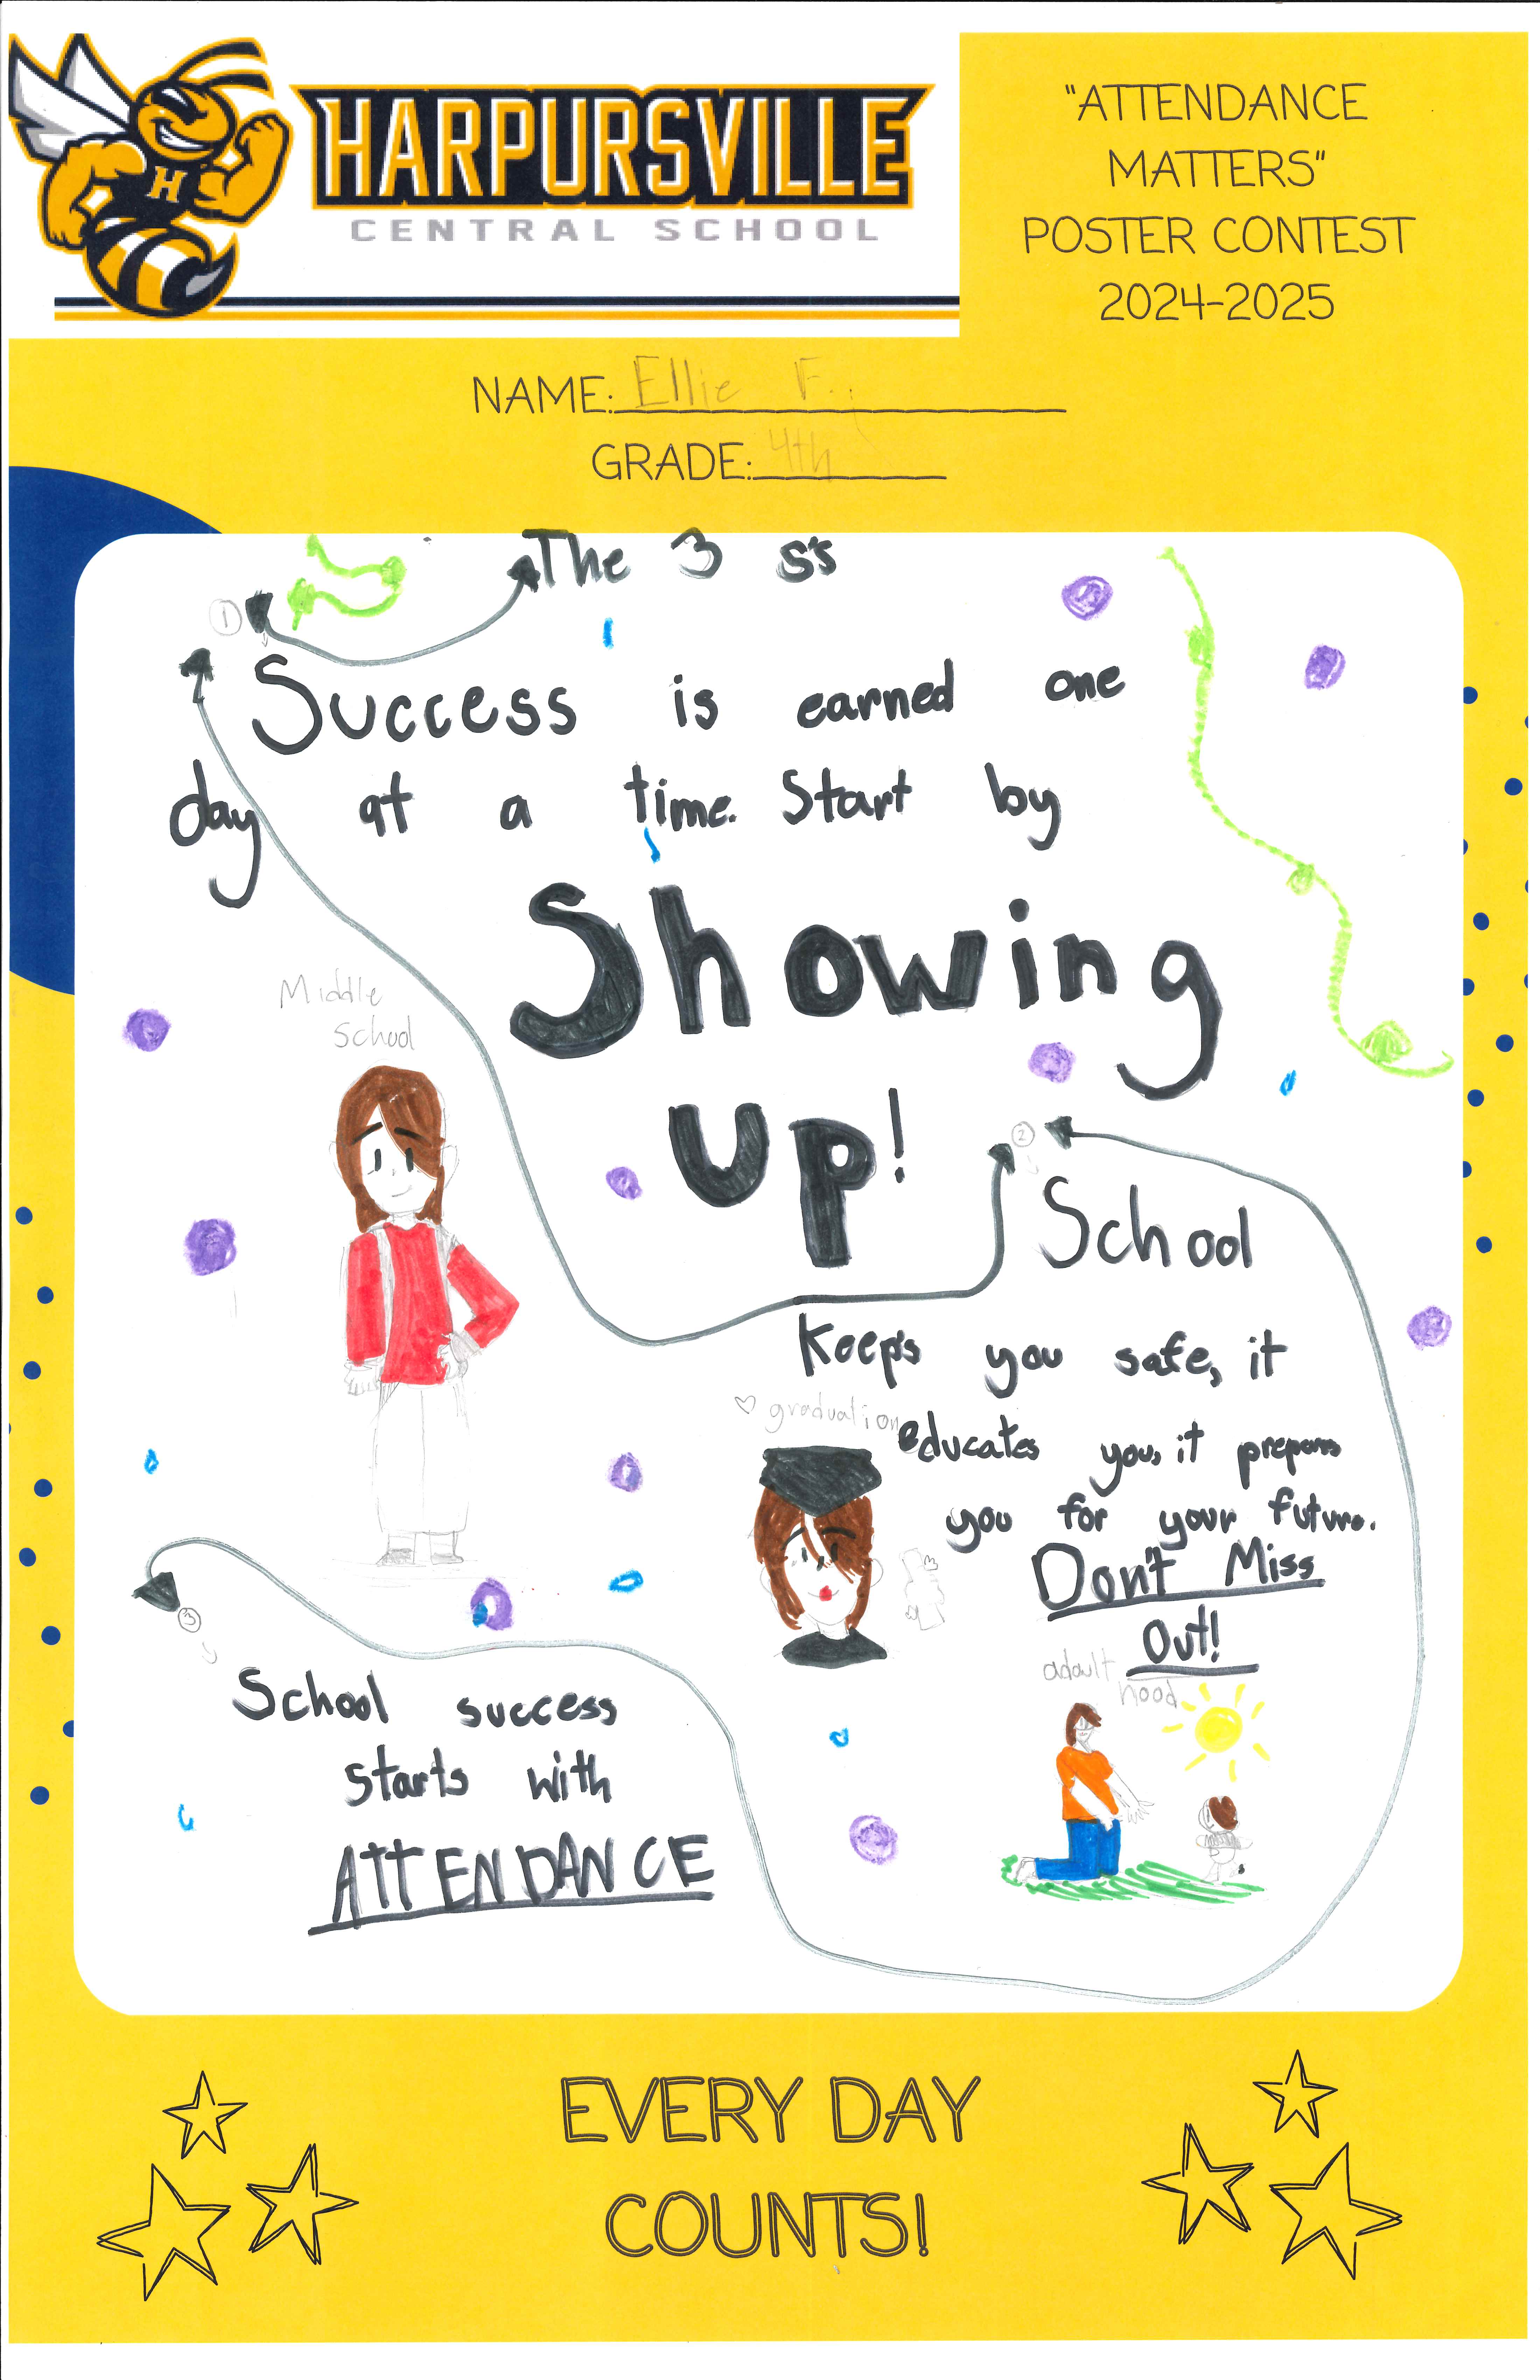 H
HARPURSVILLE
CENTRAL SCHOOL
"ATTENDANCE
MATTERS"
POSTER CONTEST
2024-2025
NAME: Ellie F.
GRADE: 4th
The 3 S's
1
Success is earned one
day at a time. Start by
Showing
up!
Middle
School
2
School
Keep's you safe, it
educates you, it prepares
you for your future.
Don't Miss
Out!
♡ graduation
adault
hood
3
School success
starts with
ATTENDANCE
EVERY DAY
COUNTS!